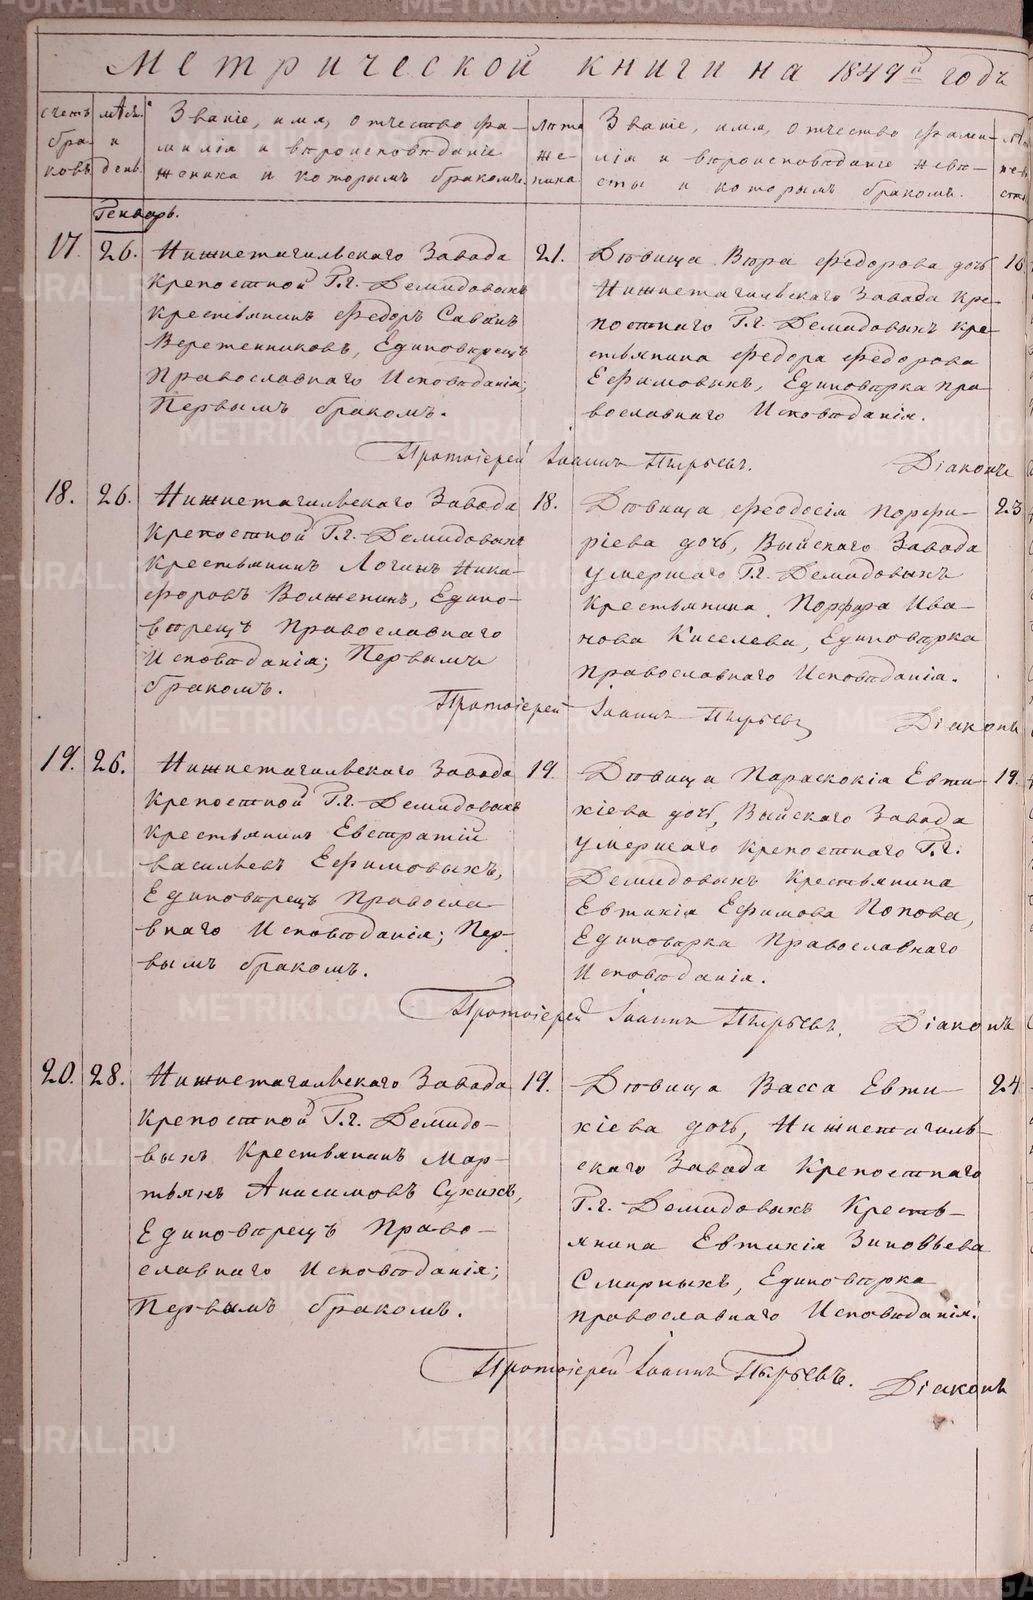 Метрической книги на 1849й годъ
счетъ браковъ
мѣс. и день
Званіе, имя, отчество фа-
милія и вѣроисповѣданіе
жениха и которымъ бракомъ.
Лѣта
же-
ниха
Званіе, имя, отчество фами-
лія и вѣроисповѣданіе невѣ-
сты и которымъ бракомъ.
Генварь.
17. 26.
Нижнетагильскаго Завода
Крепостной Г.г. Демидовыхъ
Крестьянинъ Федоръ Савинъ
Веретенниковъ, Единовѣрецъ
Православнаго Исповѣданія;
Первымъ бракомъ.
21.
Дѣвица Вѣра Федорова дочь
Нижнетагильскаго Завода Кре-
постнаго Г.г. Демидовыхъ Кре-
стьянина Федора Федорова
Ефимовыхъ, Единовѣрка пра-
вославнаго Исповѣданія.
Протоіерей Іоаннъ Пырьевъ. Діаконъ
18. 26.
Нижнетагильскаго Завода
Крепостной Г.г. Демидовыхъ
Крестьянинъ Логинъ Ника-
форовъ Волженинъ, Едино-
вѣрецъ Православнаго
Исповѣданія; Первымъ
бракомъ.
18.
Дѣвица Феодосія Порфи-
ріева дочь, Выйскаго Завода
умершаго Г.г. Демидовыхъ
Крестьянина Порфира Ива-
нова Киселева, Единовѣрка
Православнаго Исповѣданія.
23
Протоіерей Іоаннъ Пырьевъ Діаконъ
19. 26.
Нижнетагильскаго Завода
Крепостной Г.г. Демидовыхъ
Крестьянинъ Евстратій
Васильевъ Ефимовыхъ,
Единовѣрецъ Правосла-
внаго Исповѣданія; Пер-
вымъ бракомъ.
19.
Дѣвица Параскокія Евти-
хіева дочь, Выйскаго Завода
умершаго Крепостнаго Г.г.
Демидовыхъ Крестьянина
Евтихія Ефимова Попова,
Единовѣрка Православнаго
Исповѣданія.
19.
Протоіерей Іоаннъ Пырьевъ. Діаконъ
20. 28.
Нижнетагильскаго Завода
Крепостной Г.г. Демидо-
выхъ Крестьянинъ Мар-
тьянъ Анисимовъ Сухихъ,
Единовѣрецъ Право-
славнаго Исповѣданія;
Первымъ бракомъ.
19.
Дѣвица Васса Евти-
хіева дочь, Нижнетагиль-
скаго Завода Крепостнаго
Г.г. Демидовыхъ Кресть-
янина Евтихія Зиновьева
Смирныхъ, Единовѣрка
православнаго Исповѣданія.
24
Протоіерей Іоаннъ Пырьевъ. Діаконъ
METRIKI.GASO-URAL.RU